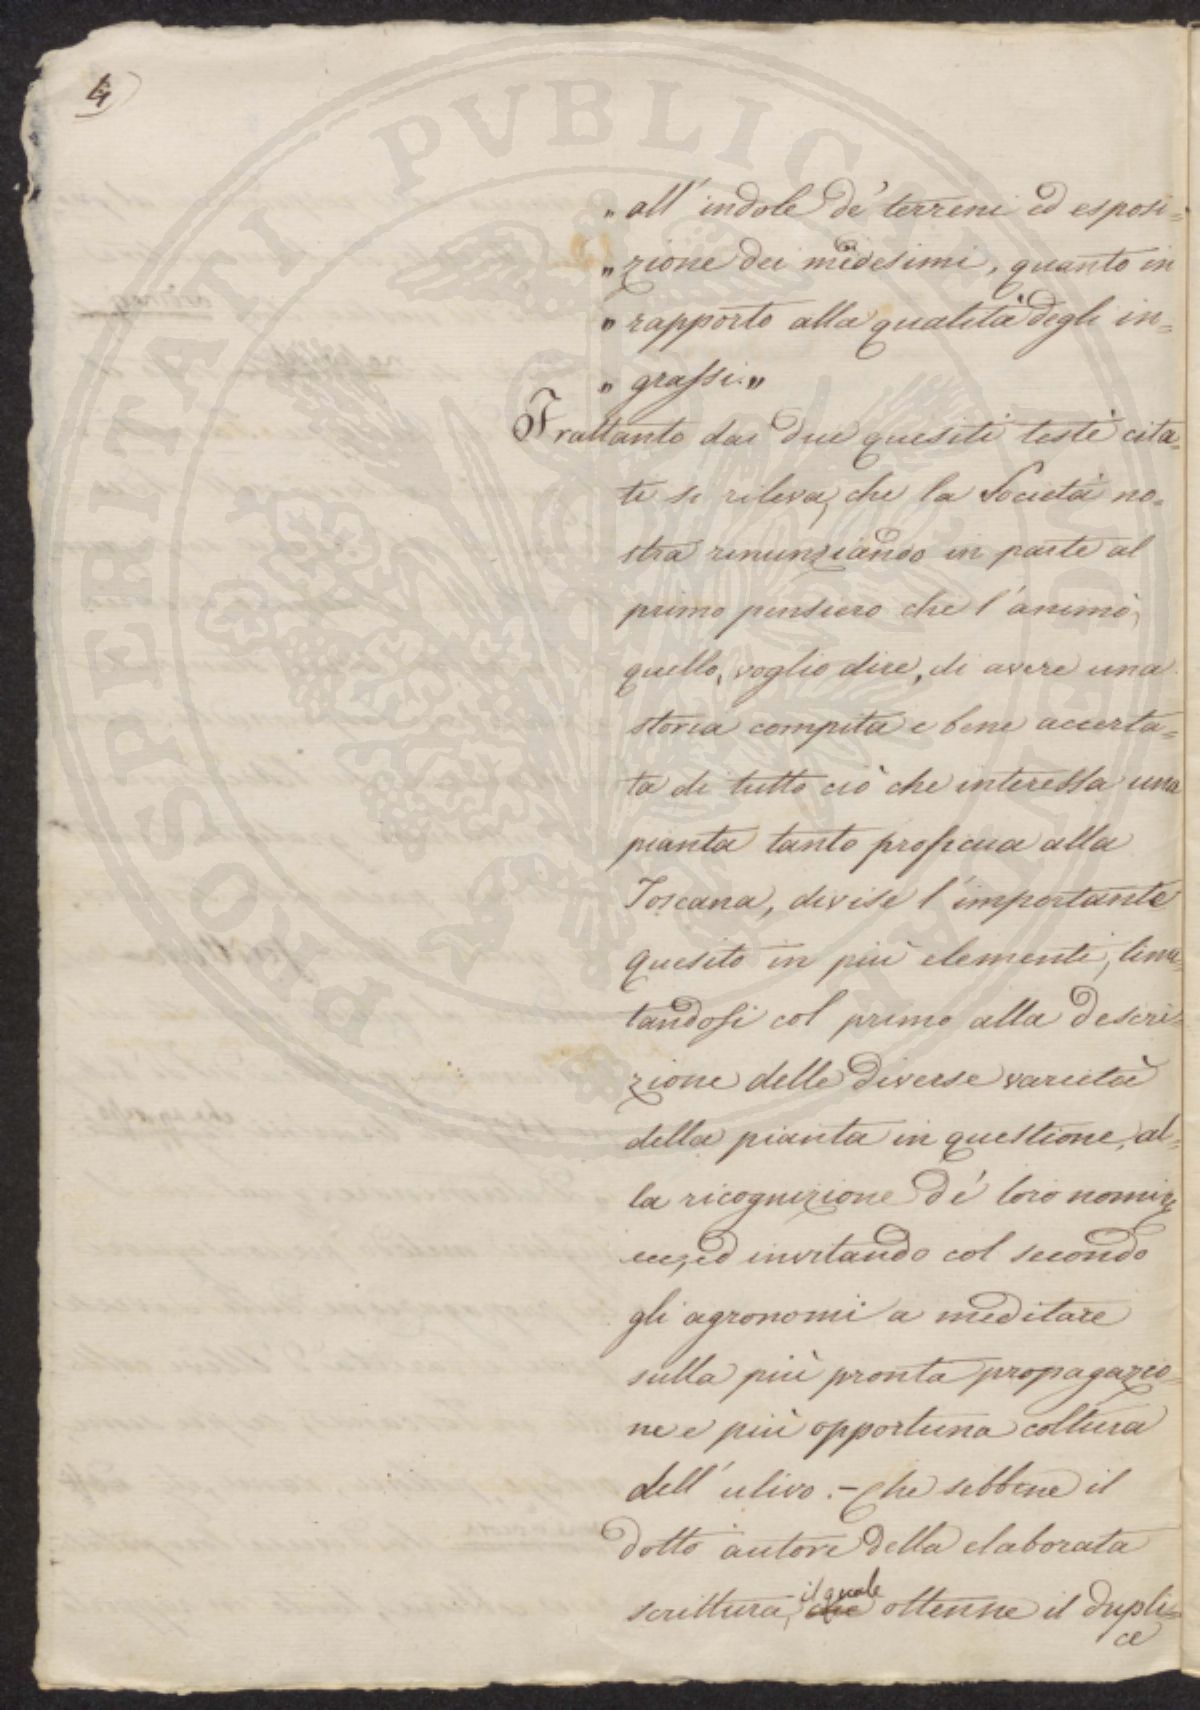 4
PROSPERITATI PVBLICAE AVGENDAE
„ all' indole de' terreni ed esposi=
„ zione dei medesimi, quanto in
„ rapporto alla qualità degli in=
„ grassi. „
Frattanto dai due quesiti testè cita=
ti si rileva, che la Società no=
stra renunziando in parte al
primo pensiero che l'animò,
quello, voglio dire, di avere una
storia compita e bene accerta=
ta di tutto ciò che interessa una
pianta tanto proficua alla
Toscana, divise l'importante
quesito in più elementi, limi=
tandosi col primo alla descri=
zione delle diverse varietà
della pianta in questione, al=
la ricognizione de' loro nomi,
ecc, ed invitando col secondo
gli agronomi a meditare
sulla più pronta propagazio=
ne e più opportuna coltura
dell' ulivo. – Che sebbene il
dotto autore della elaborata
scrittura, il quale
che ottenne il dupli=
ce